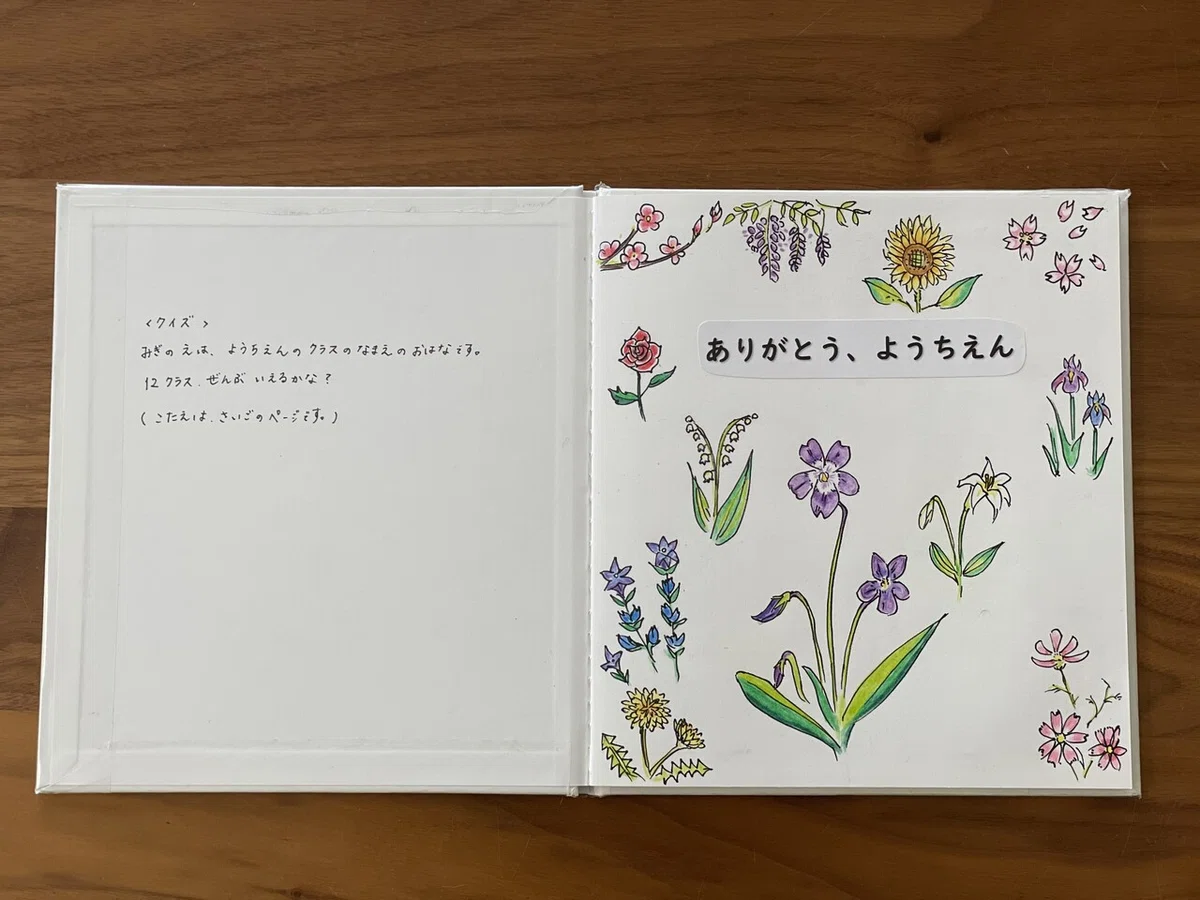 <クイズ>
みぎのえは、ようちえんのクラスのなまえのおはなです。
12クラス、ぜんぶいえるかな?
(こたえは、さいごのページです。)
ありがとう、ようちえん